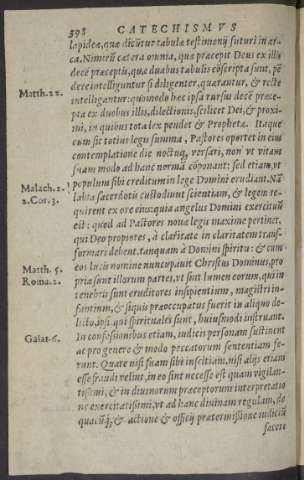 398 CATECHISMVS
lapideæ, quæ dicũtur tabulæ testimonij futuri in ar-
ca. Nimirũ cætera omnia, quæ præcepit Deus ex illis
decẽ præceptis, quæ duabus tabulis cõscripta sunt, pẽ
dere intelliguntur si diligenter, quærantur, & rectè
Matth. 22. intelligantur: quomodo hæc ipsa rursũ decẽ præce-
pta ex duobus illis, dilectionis, scilicet Dei, & proxi-
mi, in quibus tota lex pendet & Prophetæ. Itaque
cum sit totius legis summa, Pastores oportet in eius
contemplatione die noctuq́, versari, non vt vitam
suam modo ad hanc normã cõponant: sed etiam, vt
Malach. 2. populum sibi creditum in lege Domini erudiant. Nã
2. Cor. 3. labia sacerdotis custodiunt scientiam, & legem re-
quirent ex ore eius: quia angelus Domini exercituũ
est: quod ad Pastores nouæ legis maximè pertinet,
qui Deo propiores, à claritate in claritatem trans-
formari debent. tanquam à Domini spiritu: & cum
Matth. 5. eos lucis nomine nuncupauit Christus Dominus, pro
Roma. 2. priæ sunt illorum partes, vt sint lumen eorum, qui in
tenebris sunt eruditores insipientium, magistri in-
Galat. 6. fantium, & si quis præoccupatus fuerit in aliquo de-
licto, ipsi, qui spirituales sunt, huiusmodi instruant.
In confessionibus etiam, iudicis personam sustinent
ac pro genere & modo peccatorum sententiam fe-
runt. Quare nisi suam sibi inscitiam, nisi alijs etiam
esse fraudi velint, in eo sint necesse est quam vigilan-
tissimi, & in diuinorum præceptorum interpretatio
ne exercitatissimi, vt ad hanc diuinam regulam, de
quacũq́; & actione & officij prætermissione iudiciũ
facere